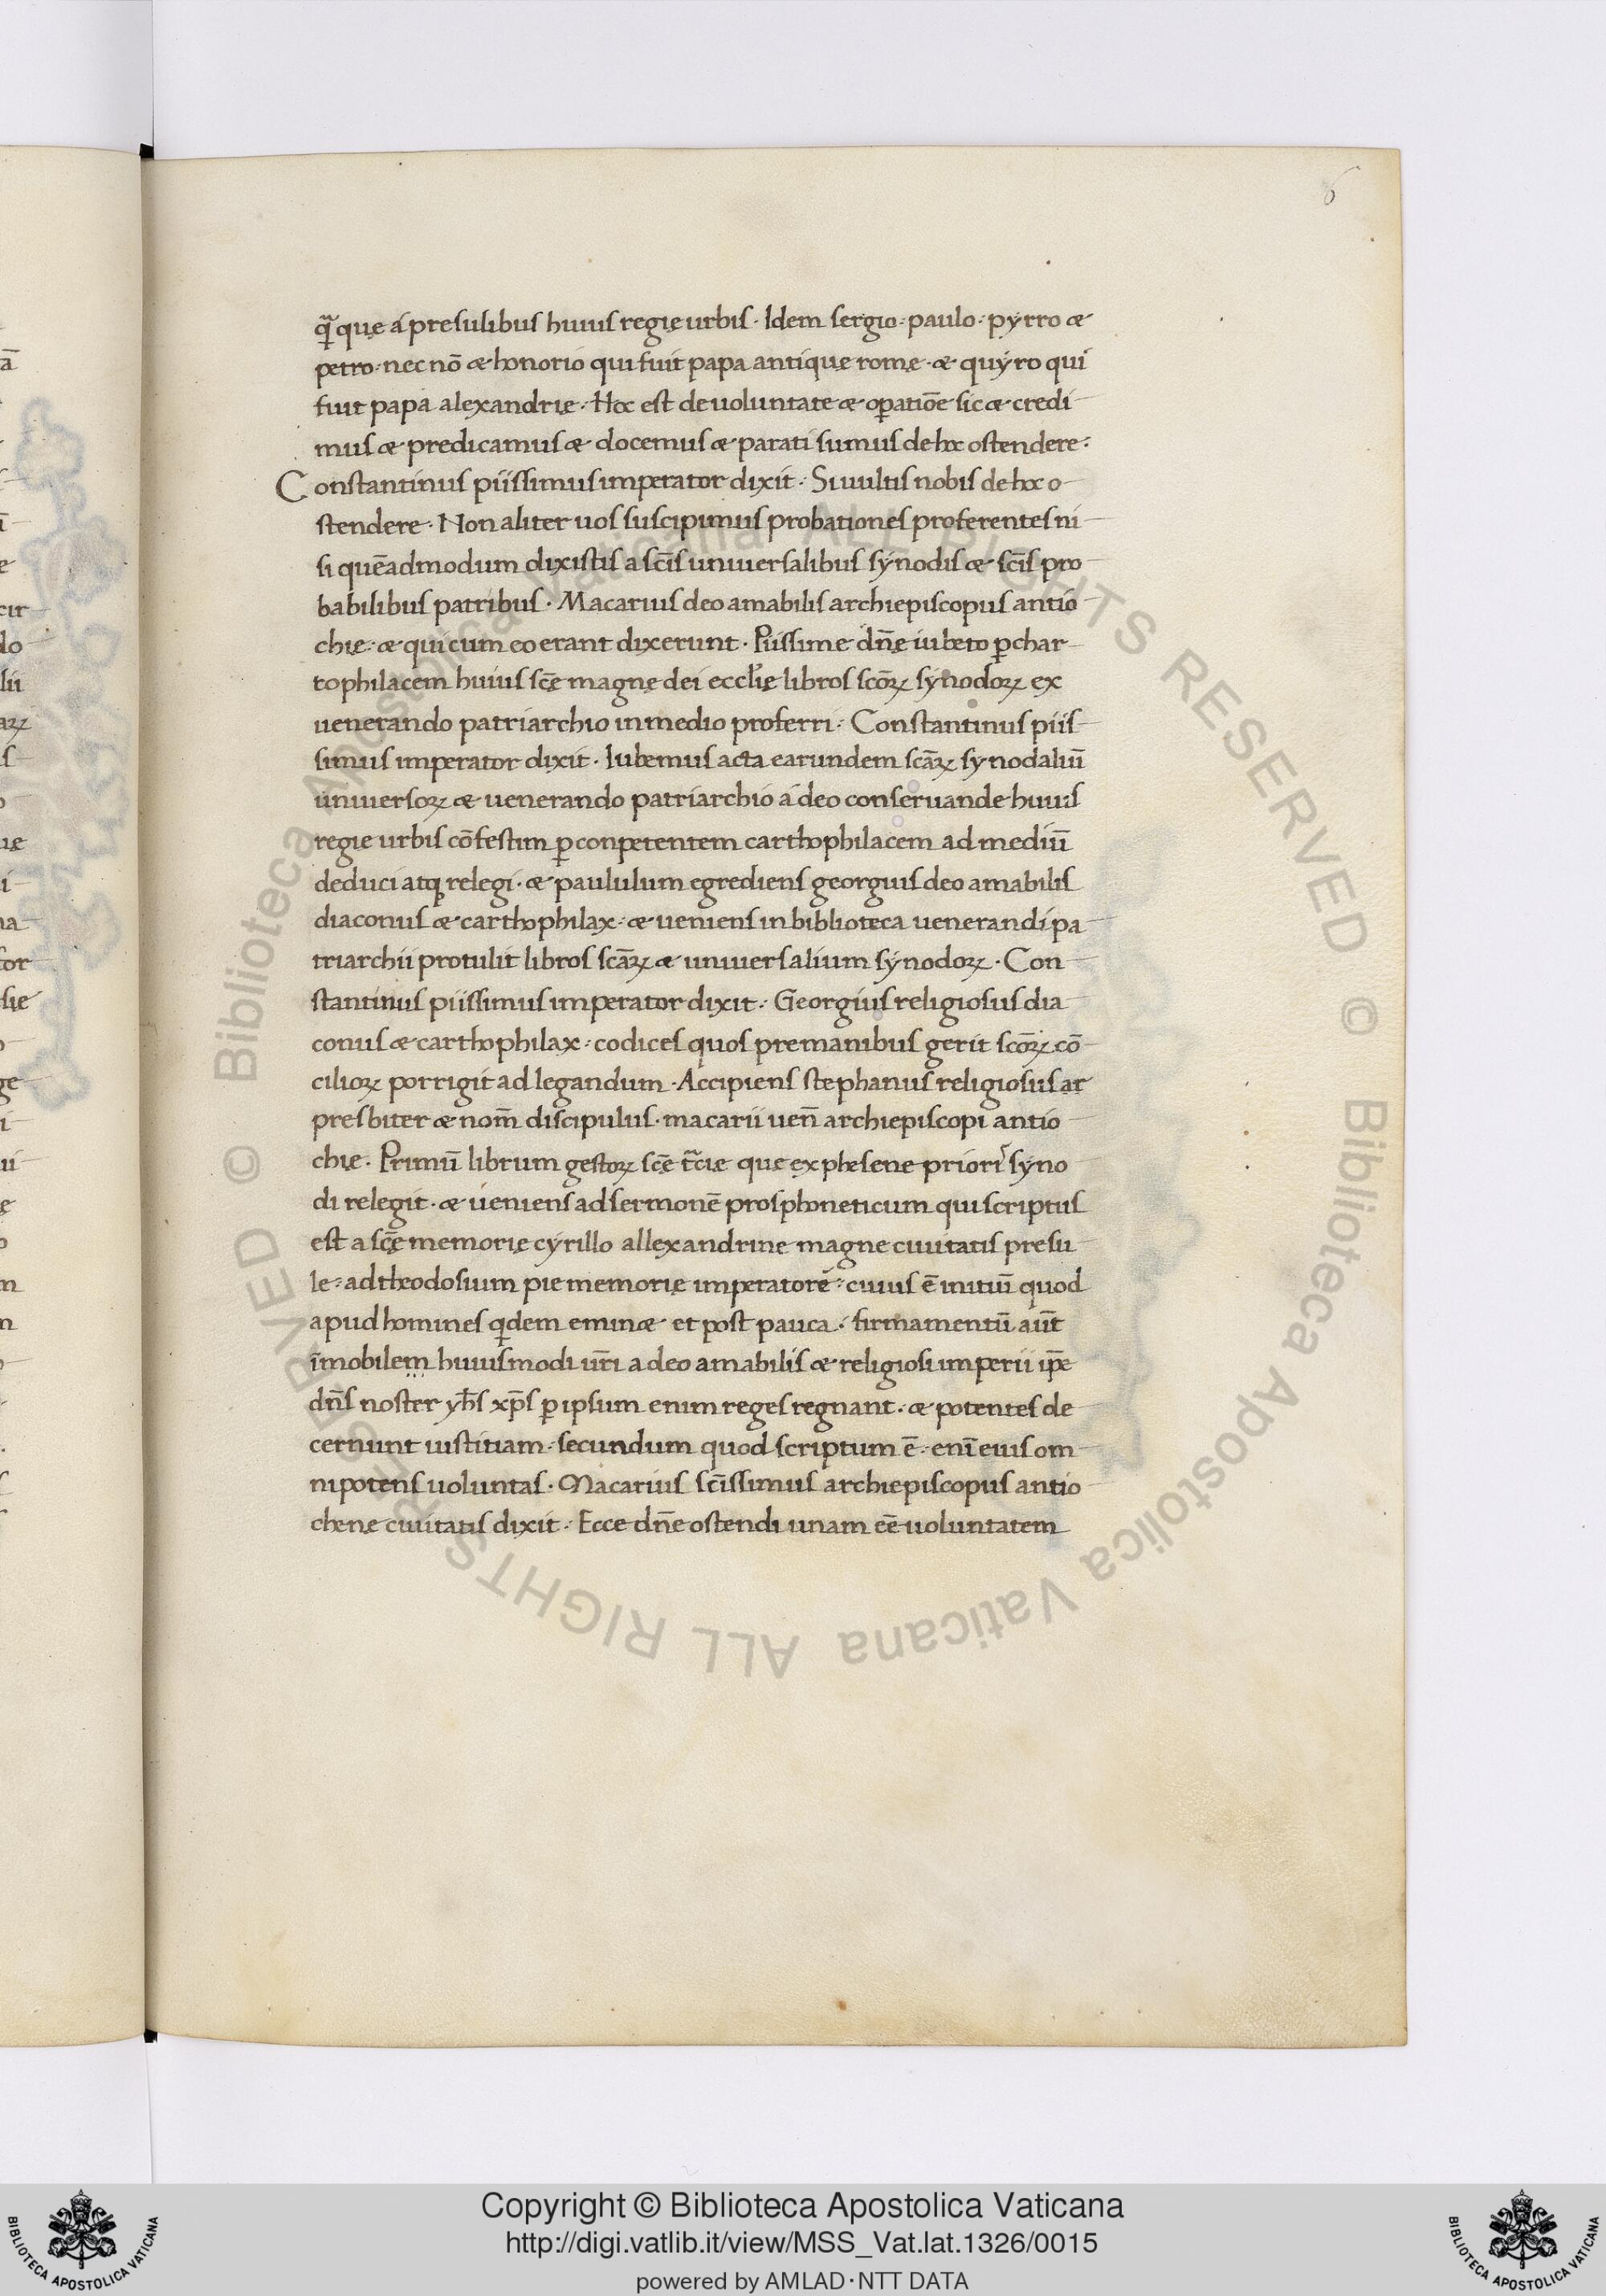 6
q̄que á presulibus huius regię urbis · Idem sergio · paulo · pyrro &
petro · nec nō & honorio qui fuit papa antiquę romę · & quyro qui
fuit papa alexandrię · Hoc est de uoluntate & oꝑatiōe sic & credi
mus & predicamus & docemus & parati sumus de hoc ostendere :
Constantinus piissimus imperator dixit · Si uultis nobis de hoc o
stendere · Non aliter uos suscipimus probationes proferentes ni
si quēadmodum dixistis a sc̄is uniuersalibus synodis & sc̄is pro
babilibus patribus · Macarius deo amabilis archiepiscopus antio
chię · & qui cum eo erant dixerunt · Piissime dn̄e iubeto ꝑ char
tophilacem huius sc̄ę magnę dei eccl̄ię libros sc̄oꝝ synodoꝝ ex
uenerando patriarchio in medio proferri · Constantinus piis
simus imperator dixit · Iubemus acta earundem sc̄aꝝ synodaliū
uniuersoꝝ & uenerando patriarchio á deo conseruande huius
regie urbis cōfestim ꝑ conpetentem carthophilacem ad mediū
deduci atq; relegi · & paululum egrediens georgius deo amabilis
diaconus & carthophilax · & ueniens in biblioteca uenerandi pa
triarchii protulit libros sc̄aꝝ & uniuersalium synodoꝝ · Con
stantinus piissimus imperator dixit · Georgius religiosus dia
conus & carthophilax · codices quos premanibus gerit sc̄oꝝ cō
cilioꝝ porrigit ad legandum · Accipiens stephanus religiosus ar
presbiter & nom̄ discipulus · macarii uen̄ archiepiscopi antio
chię · Primū librum gestoꝝ sc̄ę t̄cię quę ex phesene priori synо
di relegit · & ueniens ad sermonē prosphoneticum qui scriptus
est a sc̄ę memorię cyrillo allexandrine magne ciuitatis presu
le · ad theodosium pie memorię imperatorē · cuius ē initiū quod
apud homines qͥdem emin& et post pauca · firmamentū aūt
īmobilem huiusmodi ur̄i a deo amabilis & religiosi imperii ip̄e
dn̄s noster yh̄s xp̄s ꝑ ipsum enim reges regnant · & potentes de
cernunt iustitiam · secundum quod scriptum ē · enī eius om
nipotens uoluntas · Macarius sc̄issimus archiepiscopus antio
chene ciuitatis dixit · Ecce dn̄e ostendi unam eē uoluntatem
© Biblioteca Apostolica Vaticana ALL RIGHTS RESERVED
© Biblioteca Apostolica Vaticana ALL RIGHTS RESERVED
Copyright © Biblioteca Apostolica Vaticana
http://digi.vatlib.it/view/MSS_Vat.lat.1326/0015
powered by AMLAD·NTT DATA
BIBLIOTECA APOSTOLICA VATICANA
BIBLIOTECA APOSTOLICA VATICANA